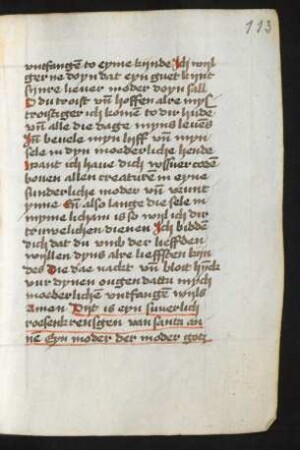 113
untfangen to eyme kijnde Ich wyl
gerne doyn dat eyn guet kijnt
sijnre lieuer moder doyn sall
O du troist vn hoffen alre mys
troistiger ich kome to dir hude
vn alle die dage myns leues
In beuele myn lijff vn myn
sele in dyn moederliche hende
want ich haue dich
bouen allen creature in eyne
sunderliche moder vn
ynne En also lange die sele in
myme licham is so wyl ich dir
truwelichen dienen Ich bidde
dich dat du vmb der liefften
wyllen dyns alre liefften kyn
des Die dae nackt vn bloit hijnck
vur dynen ougen dattu mich
moederlichen untfangen wyls
Amen Dyt is eyn suuerlich
roesenkrensgen van santa an
ne Eyn moder der moder gotz